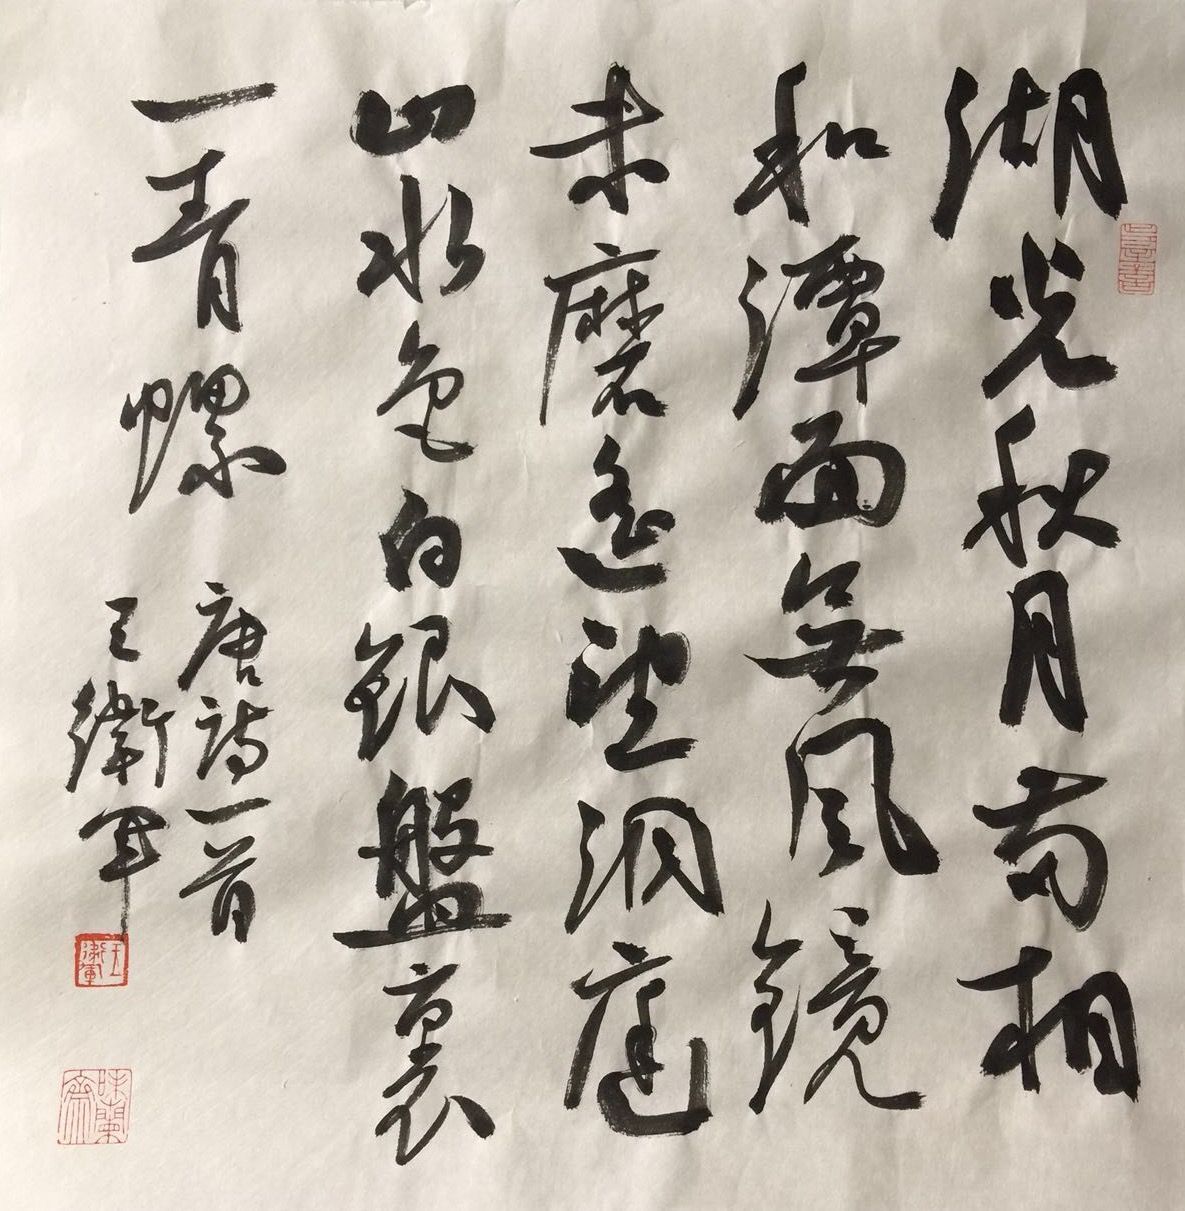 湖光秋月兩相
和潭面無風鏡
未磨遙望洞庭
山水色白銀盤裏
一青螺
唐詩一首
王衛軍
王衛軍
味蘭齋